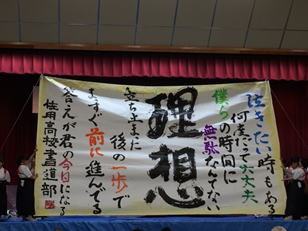 泣きたい時もある
何度だって大丈夫
僕らの時間に
無駄なんてない
理想
立ち止まに
後の一歩で
まっすぐ前に進んでる
答えが君の今日になる
佐用高校書道部